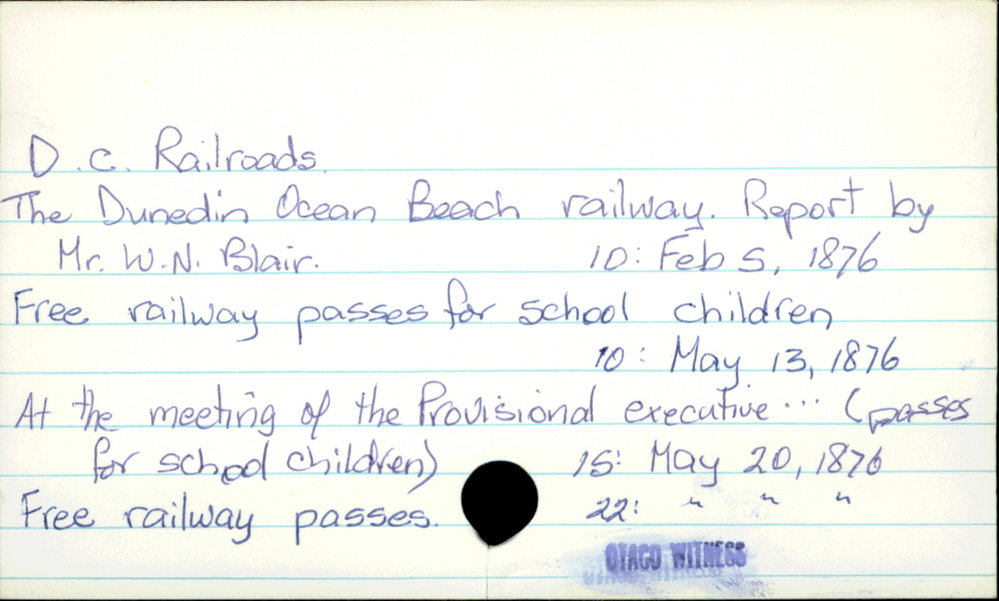 D.C. Railroads.
The Dunedin Ocean Beach railway. Report by
Mr. W.N. Blair. 10: Feb 5, 1876
Free railway passes for school children
10: May 13, 1876
At the meeting of the Provisional executive... (passes
for school children) 15: May 20, 1876
Free railway passes. 22: " " "
OTAGO WITNESS